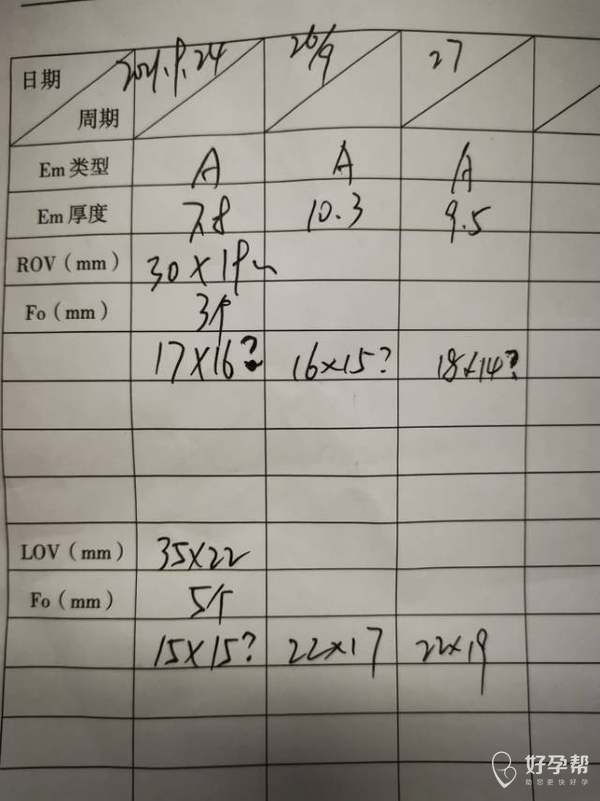 日期 周期 2021.9.24 26/9 27
Em 类型 A A A
Em 厚度 7.8 10.3 9.5
ROV（mm） 30×19
Fo（mm） 3个
17×16? 16×15? 18×14?
LOV（mm） 35×22
Fo（mm） 5个
15×15? 22×17 22×19
好孕帮
助您更快好孕